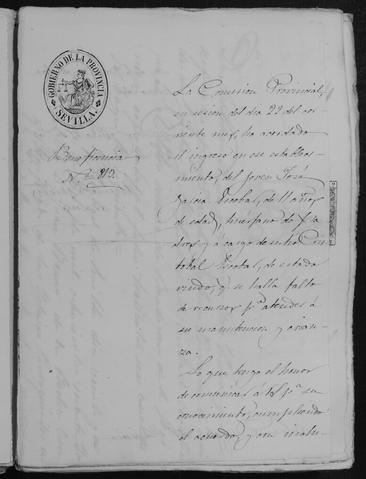 GOBIERNO DE LA PROVINCIA
SEVILLA.
Beneficencia
Nº 813
La Comision Provincial,
en sesion del dia 22 del cor
riente mes, ha acordado
el ingreso en ese estableci
miento, del joven José
Garcia Escobal, de 11 años
de edad, huerfano de Pa
dres, y á cargo de su tio Cris
tobal Escobal, de estado
viudo, y se halla falto
de recursos pª atender á
su manutencion y crian
za.
Lo que tengo el honor
de comunicar á V. pª su
conocimiento, cumpliendo
el acuerdo, y con inclu-